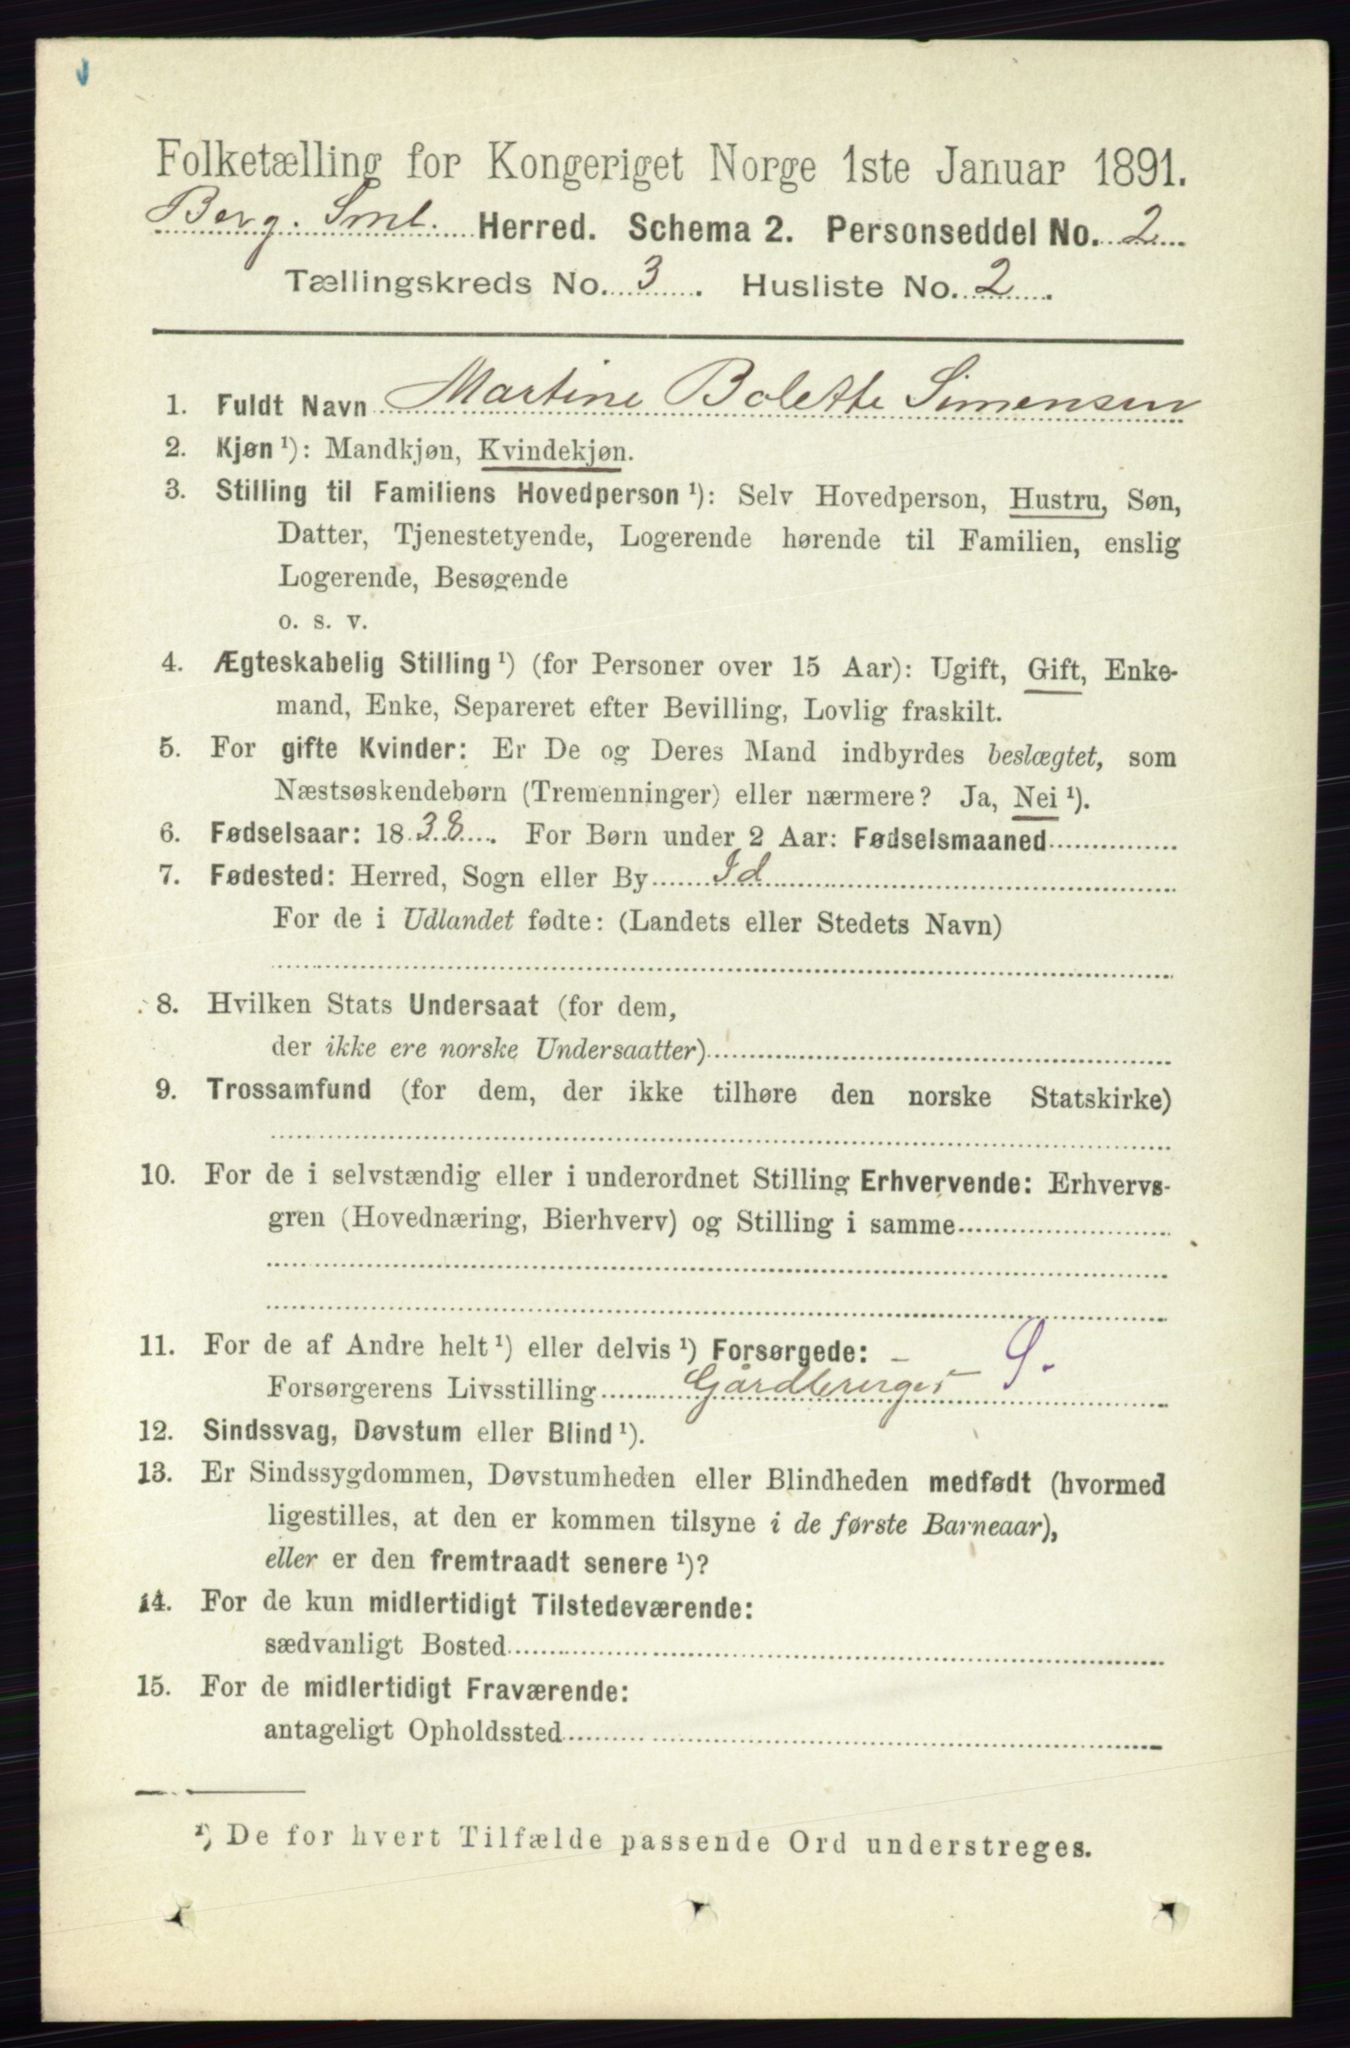 Folketælling for Kongeriget Norge 1ste Januar 1891.
Berg. Sml. Herred. Schema 2. Personseddel No. 2
Tællingskreds No. 3. Husliste No. 2.
1. Fuldt Navn Martine Bolette Simensen
2. Kjøn ¹): Mandkjøn, Kvindekjøn.
3. Stilling til Familiens Hovedperson ¹): Selv Hovedperson, Hustru, Søn,
Datter, Tjenestetyende, Logerende hørende til Familien, enslig
Logerende, Besøgende
o. s. v.
4. Ægteskabelig Stilling ¹) (for Personer over 15 Aar): Ugift, Gift, Enke-
mand, Enke, Separeret efter Bevilling, Lovlig fraskilt.
5. For gifte Kvinder: Er De og Deres Mand indbyrdes beslægtet, som
Næstsøskendebørn (Tremenninger) eller nærmere? Ja, Nei ¹).
6. Fødselsaar: 1838. For Børn under 2 Aar: Fødselsmaaned
7. Fødested: Herred, Sogn eller By Id
For de i Udlandet fødte: (Landets eller Stedets Navn)
8. Hvilken Stats Undersaat (for dem,
der ikke ere norske Undersaatter)
9. Trossamfund (for dem, der ikke tilhøre den norske Statskirke)
10. For de i selvstændig eller i underordnet Stilling Erhvervende: Erhvervs-
gren (Hovednæring, Bierhverv) og Stilling i samme
11. For de af Andre helt ¹) eller delvis ¹) Forsørgede: –
Forsørgerens Livsstilling Gårdbruger
12. Sindssvag, Døvstum eller Blind ¹).
13. Er Sindssygdommen, Døvstumheden eller Blindheden medfødt (hvormed
ligestilles, at den er kommen tilsyne i de første Barneaar),
eller er den fremtraadt senere ¹)?
14. For de kun midlertidigt Tilstedeværende:
sædvanligt Bosted
15. For de midlertidigt Fraværende:
antageligt Opholdssted
¹) De for hvert Tilfælde passende Ord understreges.